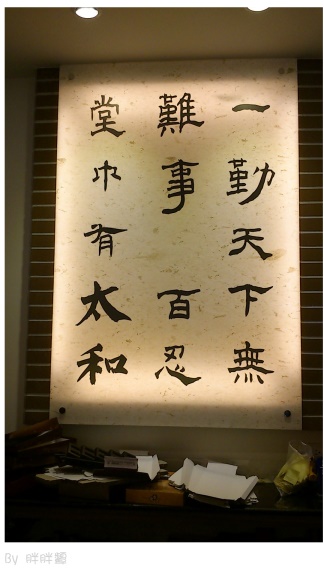 一勤天下無
難事 百忍
堂中有太和
By 胖胖